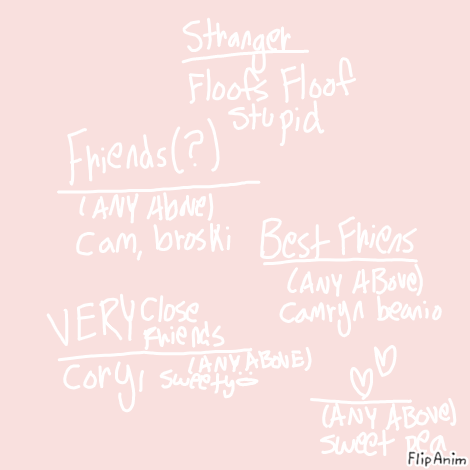 Stranger
Floofs Floof
Stupid
Friends(?)
(ANY Above)
Cam, broski
BEST Friens
(ANY ABove)
Camryn beanio
VERY Close
Friends
(ANY ABOVE)
Cory, sweety
(ANY ABove)
sweet pea
FlipAnim